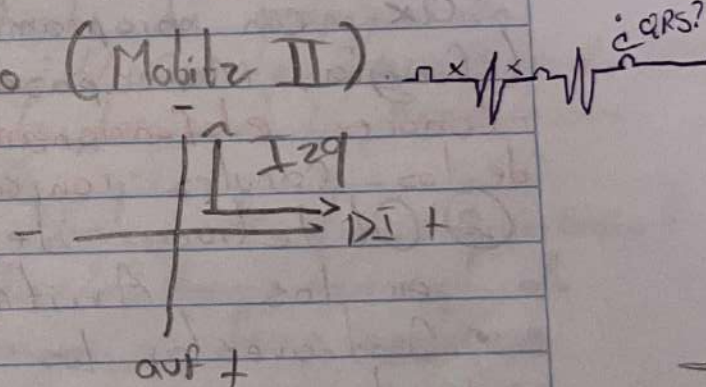 o (Mobitz II) x x ¿QRS?
-
Izq
- DI +
avf +